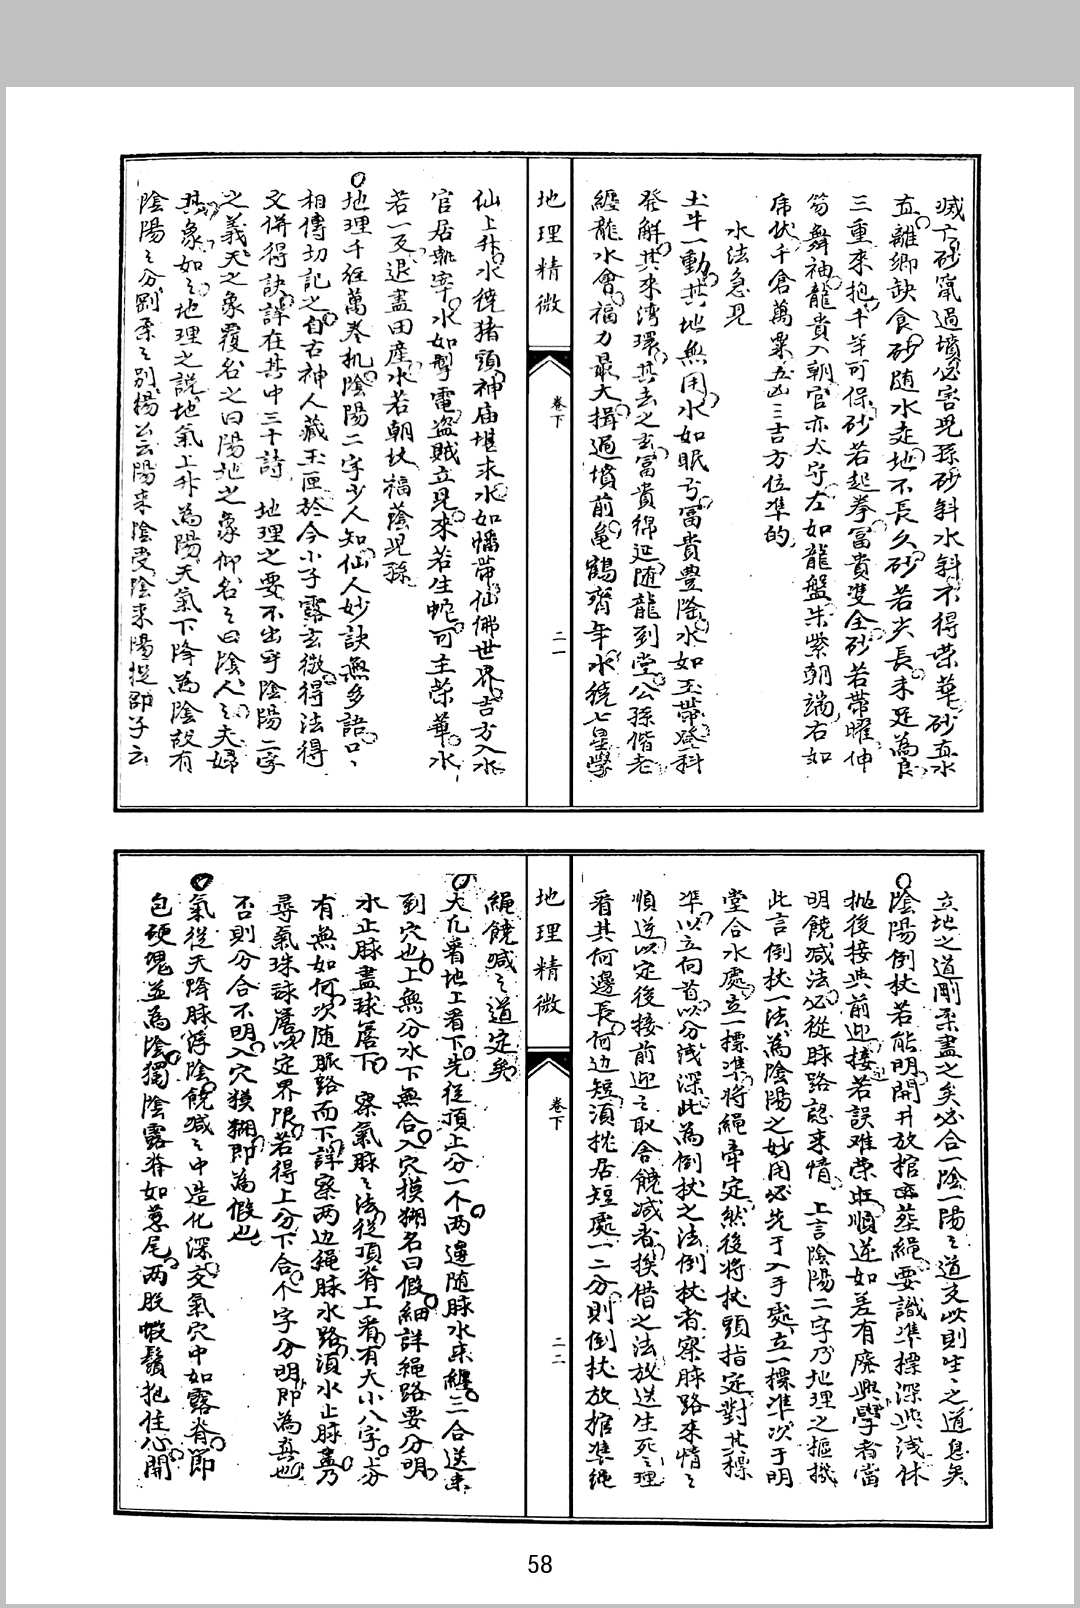 減方砂窜過墳必害兒孫砂斜水斜不得榮華砂直水
直離鄉缺食砂随水走地不長久砂若尖長未足為良
三重來抱千年可保砂若起拳富貴雙全砂若帶曜伸
笏舞袖龍貴入朝官亦太守左如龍盤朱紫朝端右如
席伏千倉萬粟五凶三吉方位準的
水法急見
土牛一動其地無用水如眠弓富貴豊隆水如玉帶登科
發解其來湾環其去之玄富貴綿延随龍到堂公孫偕老
纏龍水會福力最大揖過墳前亀鶴齊年水繞七星學
地理精微
卷下
二一
仙上升水繞猪頭神庙堪求水如幡帶仙佛世界吉方入水
官居執宰水如掣電盗賊立見來若生蛇可主榮華水
若一反退盡田産水若朝坟福蔭兒孫
地理千経萬卷机陰陽二字少人知仙人妙訣無多語口口
相傳切記之自古神人藏玉匣於今小子露玄微得法得
文併得訣詳在其中三十詩 地理之要不出乎陰陽二字
之義天之象覆名之曰陽地之象仰名之曰陰人之夫婦
其象如之地理之說地氣上升為陽天氣下降為陰故有
陰陽之分剛柔之別楊公云陽來陰受陰來陽授邵子云
立地之道剛柔盡之矣必合一陰一陽之道支如則生之道息矣
陰陽倒杖若能明開井放棺凾葬繩要識準標深與浅休
抛後接與前迎接若誤难榮旺順逆如差有廃興學者當
明饒減法必從脉路認来情 上言陰陽二字乃地理之樞機
此言倒杖一法為陰陽之妙用必先于入手處立一標準次于明
堂合水處立一標準将繩牵定然後将杖頭指定對其標
準以立向首以分浅深此為倒杖之法倒杖者察脉路來情之
順逆以定後接前迎之取舍饒减者挨借之法放送生死之理
看其何邊長何边短湏枕居短處一二分則倒杖放棺準绳
地理精微
卷下
二二
繩饒减之道定矣
大凢看地上看下先従頂上分一个两邊随脉水來纒三合送來
到穴也上無分水下無合入穴摸糊名曰假細詳繩路要分明
水止脉盡球簷下 察氣脉之法從頂脊上看有大小八字上分
有無如何次随脈路而下詳察两边繩脉水路湏水止脉盡乃
尋氣珠球簷以定界限若得上分下合个字分明即為真也
否則分合不明入穴摸糊即為假也
氣從天降脉浮陰饒减之中造化深交氣穴中如露脊節
包硬塊並為陰獨陰露脊如葱尾两股蝦鬚抱住心開
58